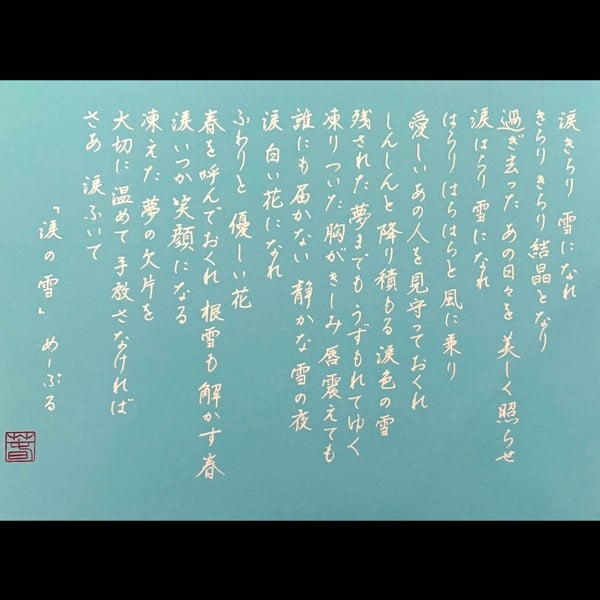 涙きらり 雪になれ
きらり きらり 結晶となり
過ぎ去った あの日々を 美しく照らせ
涙はらり 雪になれ
はらり はらはらと 風に乗り
愛しいあの人を見守っておくれ
しんしんと降り積もる 涙色の雪
残された夢までも うずもれてゆく
凍りついた胸がきしみ 唇震えても
誰にも届かない 静かな雪の夜
涙 白い花になれ
ふわりと 優しい花
春を呼んでおくれ 根雪も解かす春
涙いつか笑顔になる
凍えた 夢の欠片を
大切に温めて 手放さなければ
さあ 涙ふいて
「涙の雪」 めーぷる